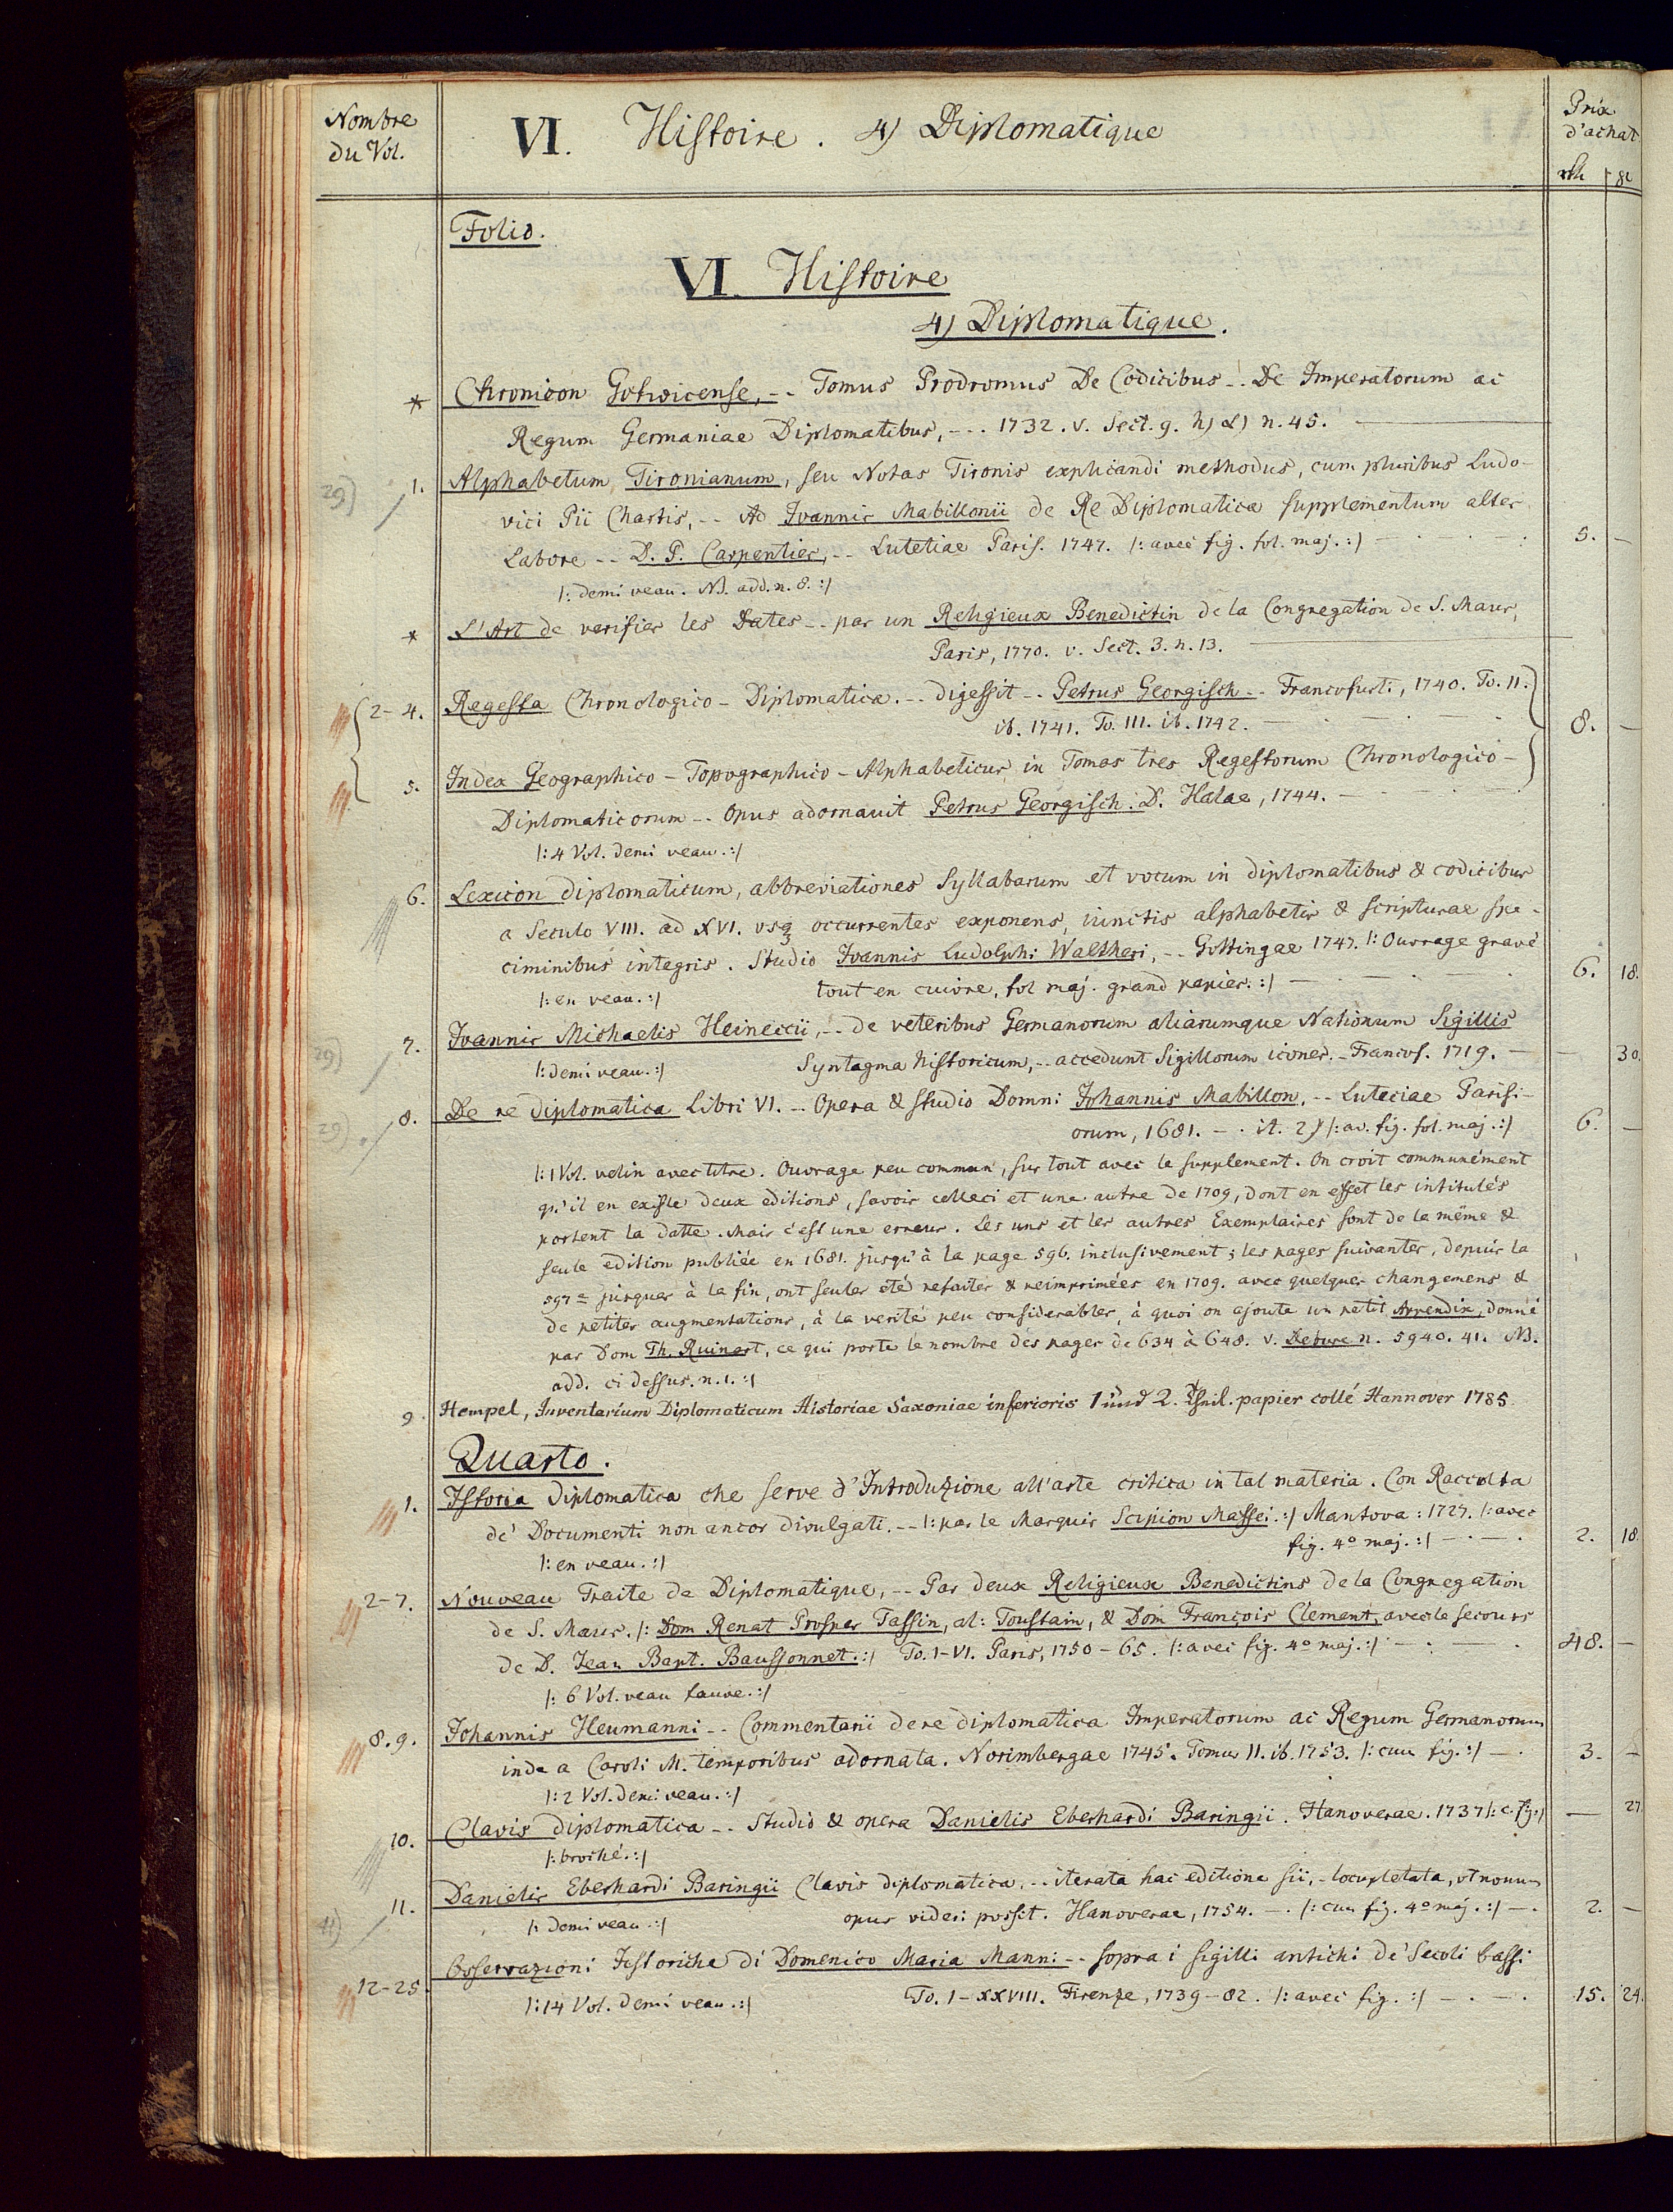 Nombre
du Vol.
VI. Histoire. 4) Diplomatique
Prix
d'achat
Folio.
VI. Histoire
4) Diplomatique.
* Chronicon Gotwicense, -- Tomus Prodromus De Codicibus -- De Imperatorum ac
Regum Germaniae Diplomatibus, --- 1732. v. Sect. 9. h) α) n. 45.
29) 1. Alphabetum Tironianum, seu Notas Tironis explicandi methodus, cum pluribus Ludo-
vici Pii Chartis, -- Ad Ioannis Mabillonii de Re Diplomatica supplementum alter
Labore -- D. P. Carpentier, -- Lutetiae Paris. 1747. /: avec fig. fol. maj. :/ 5. —
/: demi veau. NB. add. n. 8. :/
* L'Art de verifier les Dates -- par un Religieux Benedictin de la Congregation de S. Maur,
Paris, 1770. v. Sect. 3. n. 13.
2-4. Regesta Chronologico-Diplomatica. -- digessit -- Petrus Georgisch -- Francofurti, 1740. To. II.
ib. 1741. To. III. ib. 1742. 8. —
5. Index Geographico-Topographico-Alphabeticus in Tomos tres Regestorum Chronologico-
Diplomaticorum -- Opus adornauit Petrus Georgisch. D. Halae, 1744.
/: 4 Vol. demi veau. :/
6. Lexicon diplomaticum, abbreviationes Syllabarum et vocum in diplomatibus & codicibus
a Seculo VIII. ad XVI. vsq occurrentes exponens, iunctis alphabetis & scripturae spe-
ciminibus integris. Studio Ioannis Ludolphi Waltheri, -- Gottingae 1747. /: Ouvrage gravé
tout en cuivre, fol maj. grand papier. :/ 6. 18.
/: en veau. :/
7. Ioannis Michaelis Heineccii, -- de veteribus Germanorum aliarumque Nationum Sigillis
29) /: demi veau. :/ Syntagma historicum, -- accedunt Sigillorum icones. - Francof. 1719. — 30.
29) 8. De re diplomatica Libri VI. -- Opera & studio Domni Johannis Mabillon, -- Luteciae Parisi-
orum, 1681. /: av. fig. fol. maj. :/ 6. —
/: 1 Vol. velin avec titre. Ouvrage peu commun, sur tout avec le supplement. On croit communément
qu'il en existe deux editions, savoir celleci et une autre de 1709, dont en effet les intitulés
portent la datte. Mais c'est une erreur. Les uns et les autres Exemplaires sont de la même &
seule edition publiée en 1681. jusqu'à la page 596. inclusivement; les pages suivantes, depuis la
597e jusques à la fin, ont seules étés refaites & reimprimées en 1709. avec quelques changemens &
de petites augmentations, à la verité peu considerables, à quoi on ajouta un petit Appendix, donné
par Dom Th. Ruinart, ce qui porte le nombre des pages de 634 à 648. v. Debure n. 5940. 41. NB.
add. ci dessus. n. 1. :/
9. Hempel, Inventarium Diplomaticum Historiae Saxoniae inferioris 1 und 2. Theil. papier collé Hannover 1785.
Quarto.
1. Istoria diplomatica che serve d'Introduzione all'arte critica in tal materia. Con Raccolta
de' Documenti non ancor divulgati. -- /: par le Marquis Scipion Maffei. :/ Mantova: 1727. /: avec
fig. 4º maj. :/ 2. 18.
/: en veau. :/
2-7. Nouveau Traite de Diplomatique, -- Par deux Religieux Benedictins de la Congregation
de S. Maur. /: Dom Renat Prosper Tassin, al: Toustain, & Dom François Clement, avec le secours
de D. Jean Bapt. Baussonnet. :/ To. I-VI. Paris, 1750-65. /: avec fig. 4º maj. :/ 48. —
/: 6 Vol. veau fauve. :/
8. 9. Johannis Heumanni -- Commentarii de re diplomatica Imperatorum ac Regum Germanorum
inde a Caroli M. temporibus adornata. Norimbergae 1745. Tomus II. ib. 1753. /: cum fig. :/ 3. —
/: 2 Vol. demi veau. :/
10. Clavis diplomatica -- Studio & opera Danielis Eberhardi Baringii. Hanoverae. 1737 /: c. fig. :/ — 27.
/: broché. :/
11. Danielis Eberhardi Baringii Clavis diplomatica, -- iterata hac editione sii, - locupletata, vt nouum
/: demi veau. :/ opus videri possit. Hanoverae, 1754. — /: cum fig. 4º maj. :/ 2. —
12-25. Osservazioni Istoriche di Domenico Maria Manni -- sopra i sigilli antichi de' Secoli bassi
/: 14 Vol. demi veau. :/ To. I-XXVIII. Firenze, 1739-82. /: avec fig. :/ 15. 24.